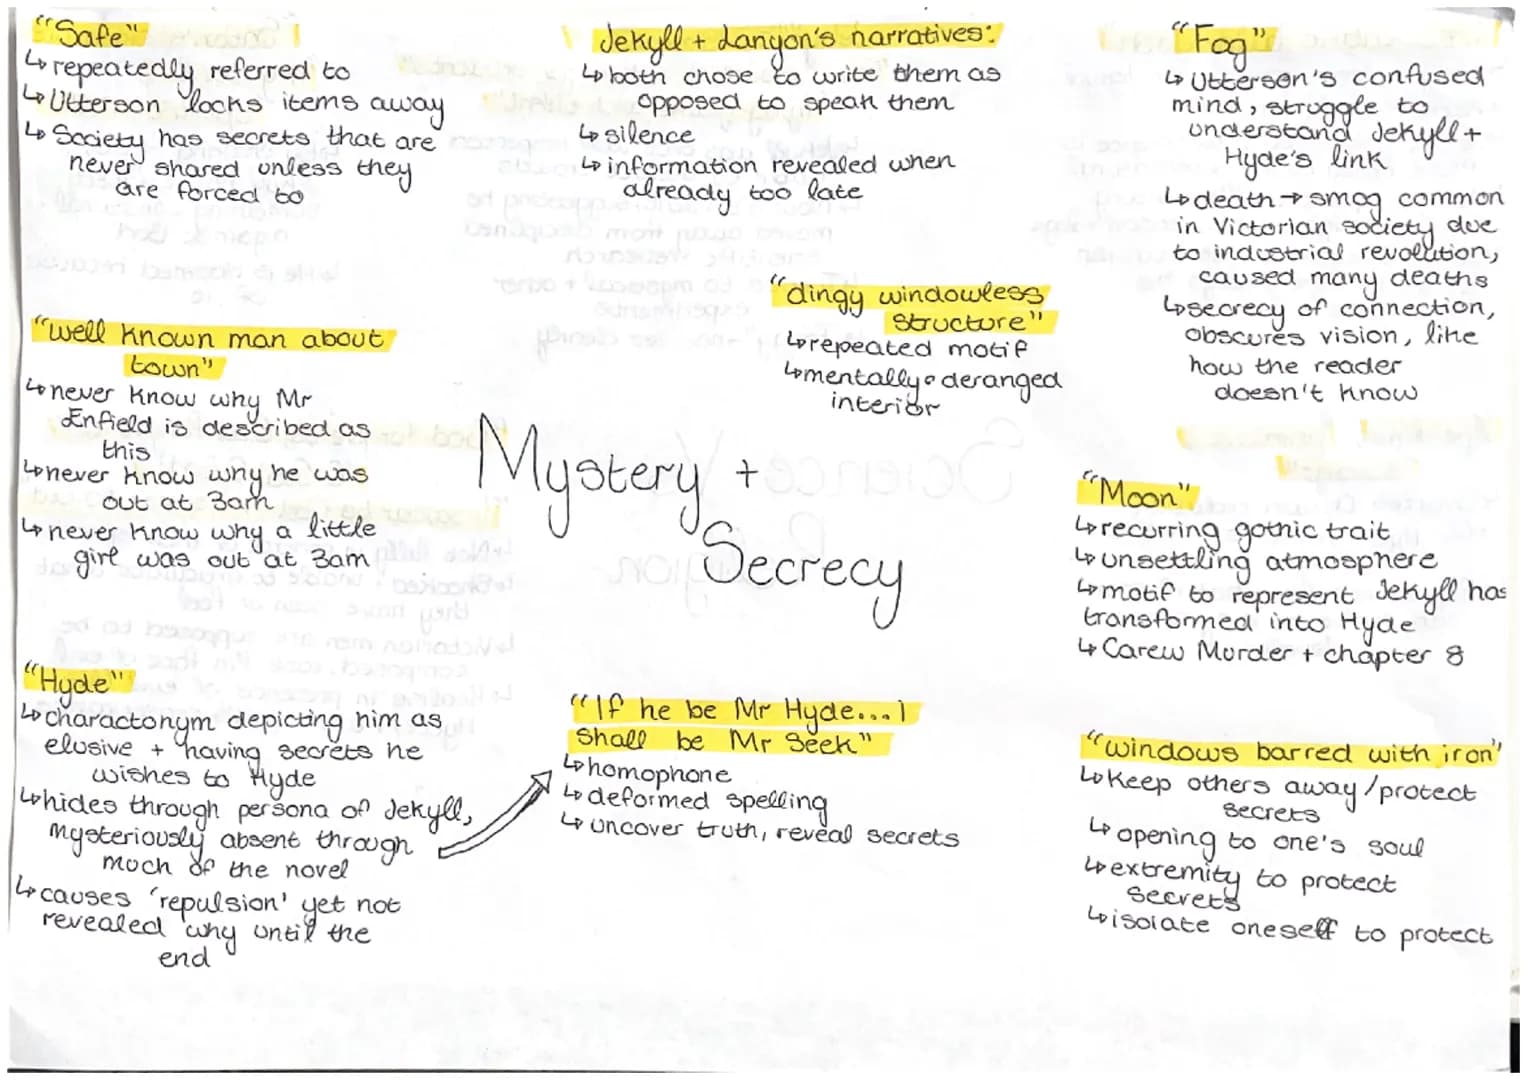 "Safe"
↳ repeatedly referred to
↳ Utterson locks items away
↳ Society has secrets that are
never shared unless they
are forced to
Jekyll + Lanyon's narratives:
↳ both chose to write them as
opposed to speak them
↳ silence
↳ information revealed when
already too late
"Fog"
↳ Utterson's confused
mind, struggle to
understand Jekyll +
Hyde's link
↳ death → smog common
in Victorian society due
to industrial revolution,
caused many deaths
↳ secrecy of connection,
obscures vision, like
how the reader
doesn't know
"dingy windowless
structure"
↳ repeated motif
↳ mentally deranged
interior
"well known man about
town"
↳ never know why Mr
Enfield is described as
this
↳ never know why he was
out at 3am
↳ never know why a little
girl was out at 3am
Mystery +
Secrecy
"Moon"
↳ recurring gothic trait
↳ unsettling atmosphere
↳ motif to represent Jekyll has
transformed into Hyde
↳ Carew Murder + chapter 8
"Hyde"
↳ charactonym depicting him as
elusive + having secrets he
wishes to Hyde
↳ hides through persona of Jekyll,
mysteriously absent through
much of the novel
↳ causes 'repulsion' yet not
revealed why until the
end
"If he be Mr Hyde... I
shall be Mr Seek"
↳ homophone
↳ deformed spelling
↳ uncover truth, reveal secrets
"windows barred with iron"
↳ Keep others away/protect
secrets
↳ opening to one's soul
↳ extremity to protect
secrets
↳ isolate oneself to protect